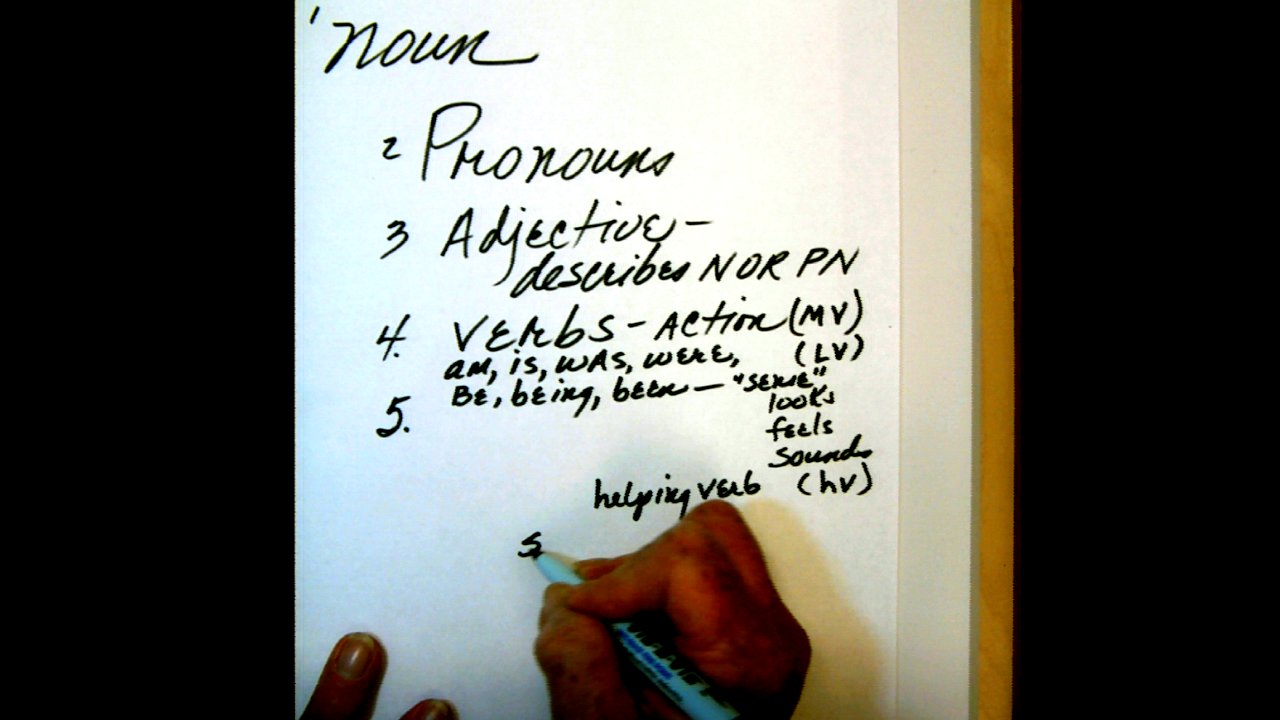 1 noun
2 Pronouns
3 Adjective -
describes N OR PN
4. VERbS - ACtion (MV)
am, is, WAS, WERE, (LV)
BE, being, been - "sense"
looks
5. feels
sounds
helping verb (hv)
s